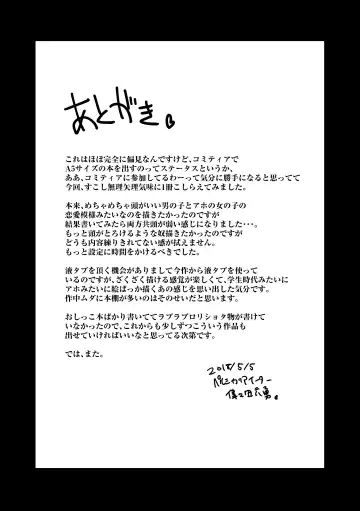 あとがき。
これはほぼ完全に偏見なんですけど、コミティアで
A5サイズの本を出すのってステータスというか、
ああ、コミティアに参加してるわーって気分に勝手になると思ってて
今回、すこし無理矢理気味に1冊こしらえてみました。
本来、めちゃめちゃ頭がいい男の子とアホの女の子の
恋愛模様みたいなのを描きたかったのですが
結果書いてみたら両方共頭が弱い感じになりました・・・。
もっと頭がとろけるような奴描きたかったのですが
どうも内容練りきれてない感が拭えません。
もっと設定に時間をかけるべきでした。
液タブを頂く機会がありまして今作から液タブを使って
いるのですが、ざくざく描ける感覚が楽しくて、学生時代みたいに
アホみたいに絵ばっか描くあの感じを思い出した気分です。
作中ムダに本棚が多いのはそのせいだと思います。
おしっこ本ばかり書いててラブラブロリショタ物が書けて
いなかったので、これからも少しずつこういう作品も
出せていければいいなと思ってる次第です。
では、また。
2018/5/5